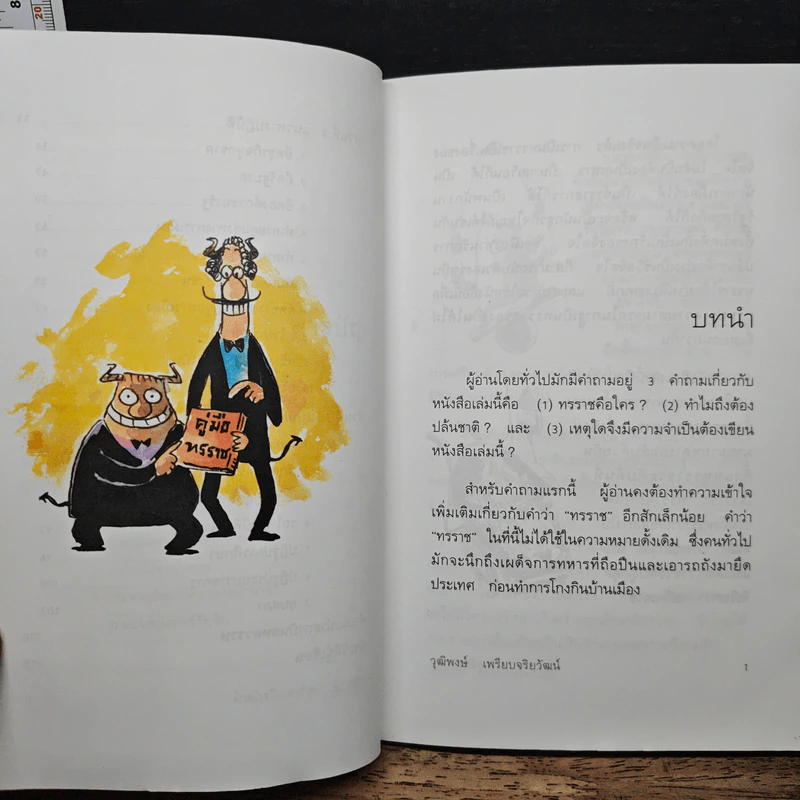 8
20
คู่มือ
ทรราช
บทนำ
ผู้อ่านโดยทั่วไปมักมีคำถามอยู่ 3 คำถามเกี่ยวกับ
หนังสือเล่มนี้คือ (1) ทรราชคือใคร ? (2) ทำไมถึงต้อง
ปล้นชาติ ? และ (3) เหตุใดจึงมีความจำเป็นต้องเขียน
หนังสือเล่มนี้ ?
สำหรับคำถามแรกนี้ ผู้อ่านคงต้องทำความเข้าใจ
เพิ่มเติมเกี่ยวกับคำว่า "ทรราช" อีกสักเล็กน้อย คำว่า
"ทรราช" ในที่นี้ไม่ได้ใช้ในความหมายดั้งเดิม ซึ่งคนทั่วไป
มักจะนึกถึงเผด็จการทหารที่ถือปืนและเอารถถังมายึด
ประเทศ ก่อนทำการโกงกินบ้านเมือง
วุฒิพงษ์ เพรียบจริยวัฒน์ 1